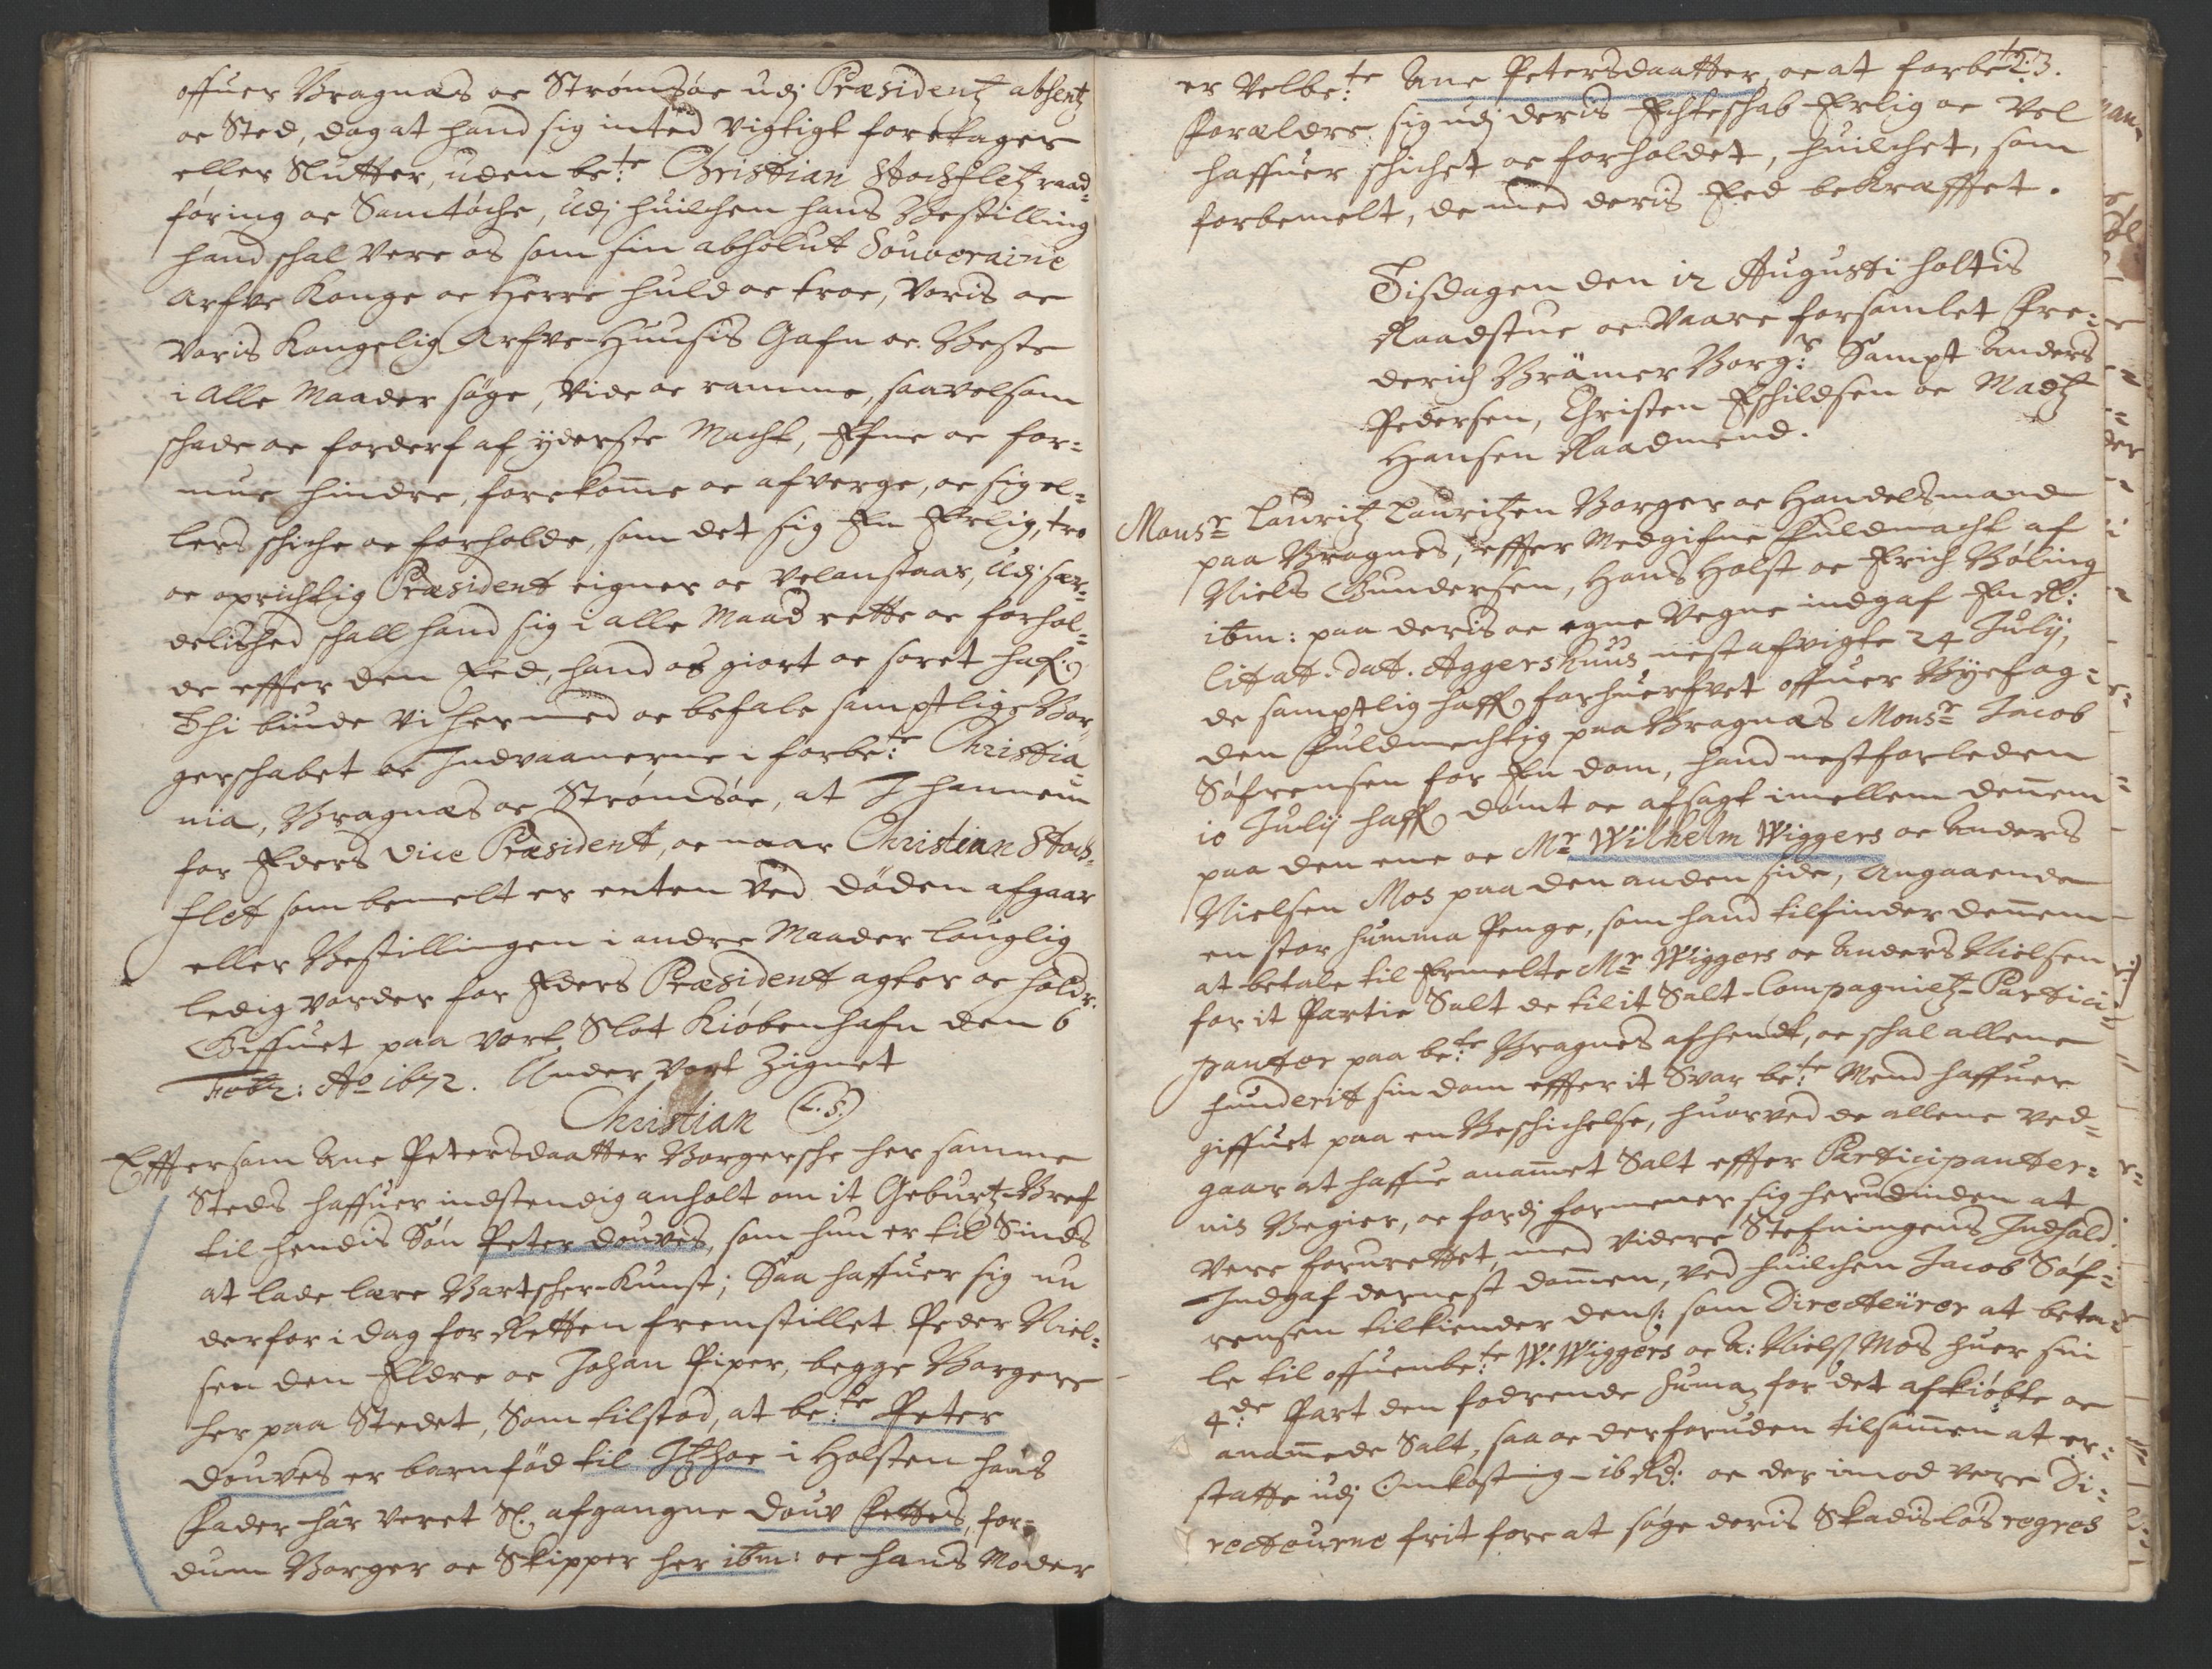 offuer Bragnæs oc Strømsøe udj Præsidentz absentz
oc Sted, dog at hand sig inted vigtigt foretager
eller Slutter, uden be:te Christian Stochfletz raad-
føring oc Samtøche, Udj huilchen hans Bestilling
hand schal vere os som sin absolut Souveraine
Arfve Konge oc Herre huld oc troe, Voris oc
Voris Kongelig Arfve-Huusis Gafn oc Beste
i alle Maader søge, vide oc ramme, saavelsom
schade oc forderf af yderste Macht, Efne oc for=
mue hindre, forekomme oc afverge, oc sig el=
lers schiche oc forholde, som det sig En Erlig, tro
oc oprichtig Præsident eigner oc velanstaar, Udj sær=
delished schall hand sig i alle Maad rette oc forhol=
de effter den Eed, hand os giort oc soret haf.
Thi biude Vi hermed oc befale samptlige Bor
gerschabet oc Indvaanerne i forbe:te Christia=
nia, Bragnæs oc Strømsøe, at I hannem
for Eders vice Præsident, oc naar Christian Stoch=
flet som bemelt er enten ved døden afgaar
eller Bestillingen i andre Maader louglig
ledig vorder for Eders Præsident agter oc holdr.
Giffuet paa vort Slot Kiøbenhafn den 6
Febr: Ao 1672. Under vort Zignet
Christian (L.S.)
Efftersom Ane Petersdaatter Borgersche her samme
Steds haffuer indstendig anholt om it Geburtz-Bref
til hendis Søn Peter douves, som hun er til Sinds
at lade lære Bartscher-Kunst; Saa haffuer sig nu
derfor i dag for Retten fremstillet Peder Niel=
sen den Eldre oc Johan Piper, begge Borgere
her paa Stedet, Som tilstod, at be:te Peter
Douves er barnfød til Itzhoe i Holsten hans
Fader hâr veret Sl. afgangne Douv Fetters, for=
dum Borger oc Skipper her ibm: oc hans Moder
123.
er Velbe:te Ane Petersdaatter, oc at forbe:te
Forældre sig udj deris Echteschab Erlig oc Vel
haffuer schichet oc forholdet, huilchet, som
forbemelt, de med deris Eed bekræfftet.
Tisdagen den 12 Augusti holtis
Raadstue oc Vaare forsamlet Fre=
derich Brämer Borg:r Sampt Anders
Pedersen, Christen Eschildsen oc Madtz
Hansen Raadmend.
Monsr Lauritz Lauritzen Borger oc Handelsmand
paa Bragnes, effter Medgifne Fuldmacht af
Niels Gundersen, Hans Holst oc Erich Bøling
ibm: paa deris oc egne Vegne indgaf En R:
Citat. dat. Aggershuus nestafvigte 24 Julij,
de samptlig haffr forhuerfvet offuer Byefog=
den Fuldmechtig paa Bragnæs Monsr Jacob
Søfrensen for En dom, hand nestforleden
10 Julij haffr dømt oc afsagt imellem dennem
paa den ene oc Mr Wilhelm Wiggers oc Anders
Nielsen Mos paa den anden side, Angaaende
en stor summa Penge, som hand tilfinder dennem
at betale til Ermelte Mr Wiggers oc Anders Nielsen
for it Partie Salt de til it Salt-Compagnietz-Partici=
panter paa be:te Bragnes afhendt, oc schal allene
funderit sin dom effter it Svar be:te Mend haffuer
giffuet paa en Beschichelse, huorved de allene ved=
gaar at haffue anammet Salt effter Participanter=
nis Begier, oc fordj formener sig herudinden at
vere forurettet, med videre Stefningens Indhold.
Indgaf dernest dommen, ved huilchen Jacob Søf=
rensen tilkiender dem som Directeürer at beta=
le til offuenbe:te W. Wiggers oc A: Niels Mos huer sin
4:de Part den fodrende suma, for det afkiøbte oc
anammede Salt, saa oc derforuden tilsammen at er=
statte udj Omkostning 16 Rd: oc der imod vere Di=
recteurne frit fore at søge deris Skadisløs regres